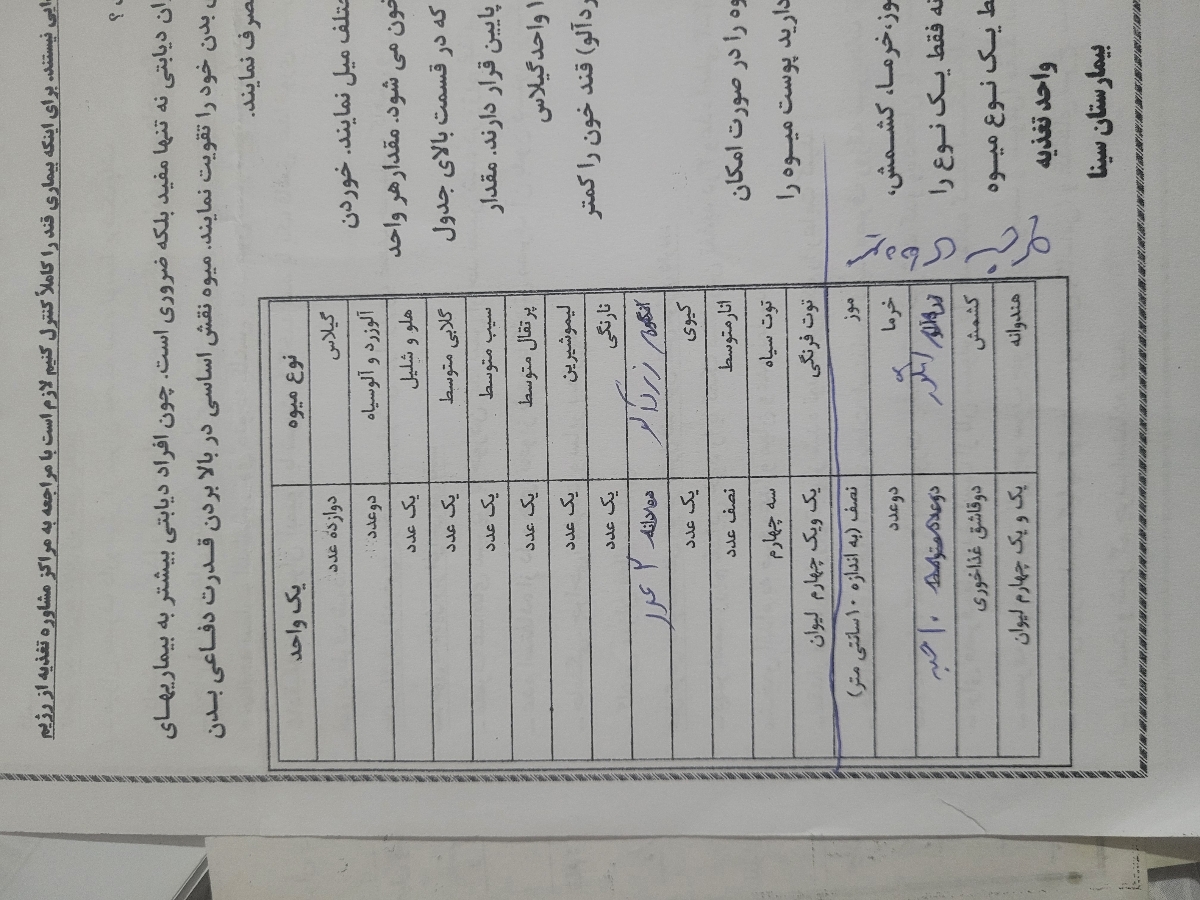 ایی نیستند. برای اینکه بیماری قند را کاملاً کنترل کنیم لازم است با مراجعه به مراکز مشاوره تغذیه از رژیم
؟
ن دیابتی نه تنها مفید بلکه ضروری است. چون افراد دیابتی بیشتر به بیماریهای
بدن خود را تقویت نمایند. میوه نقش اساسی در بالا بردن قدرت دفاعی بدن
صرف نمایند.
ختلف میل نمایند. خوردن
خون می شود. مقدار هر واحد
که در قسمت بالای جدول
پایین قرار دارند. مقدار
۱ واحد گیلاس
ردآلو) قند خون را کمتر
وه را در صورت امکان
دارید پوست میوه را
وز، خرما، کشمش،
نه فقط یک نوع را
ط یک نوع میوه
واحد تغذیه
بیمارستان سینا
نوع میوه یک واحد
گیلاس دوازده عدد
آلوزرد و آلوسیاه دوعدد
هلو و شلیل یک عدد
گلابی متوسط یک عدد
سیب متوسط یک عدد
پرتقال متوسط یک عدد
لیموشیرین یک عدد
نارنگی یک عدد
انگور زردآلو ده دانه ۳ عدد
کیوی یک عدد
انارمتوسط نصف عدد
توت سیاه سه چهارم
توت فرنگی یک ویک چهارم لیوان
موز نصف (به اندازه ۱۰سانتی متر)
خرما دوعدد
زردآلو انگور دوعدد متوسط ۱۰ حبه
کشمش دوقاشق غذاخوری
هندوانه یک و یک چهارم لیوان